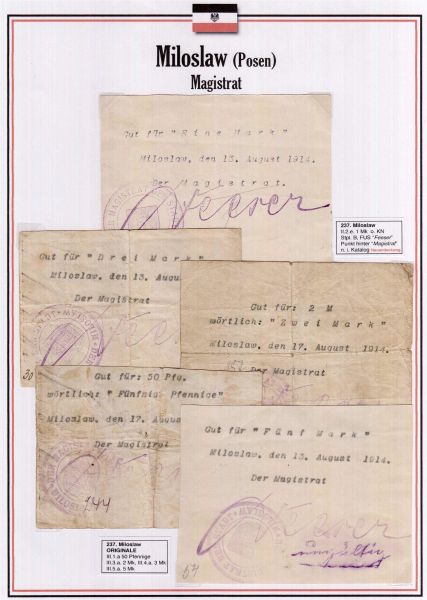 Miloslaw (Posen)
Magistrat
Gut für "Eine Mark"
Miloslaw, den 13. August 1914.
Der Magistrat.
Feerer
237. Miloslaw
II.2.e. 1 Mk o. KN
Stpl. B, FUS "Feeser"
Punkt hinter "Magistrat"
n. i. Katalog Neuentdeckung
Gut für "Drei Mark"
Miloslaw, den 13. Augus
Der Magistrat
30
Gut für: 2 M
wörtlich: "Zwei Mark"
Miloslaw, den 17. August 1914.
Der Magistrat
Gut für: 50 Pfg.
wörtlich: "Fünfzig Pfennige"
Miloslaw, den 17. Augus
Der Magistrat
144
Gut für "Fünf Mark"
Miloslaw, den 13. August 1914.
Der Magistrat
ungültig
54
237. Miloslaw
ORIGINALE
III.1.a 50 Pfennige
III.3.a. 2 Mk, III.4.a. 3 Mk
III.5.a. 5 Mk